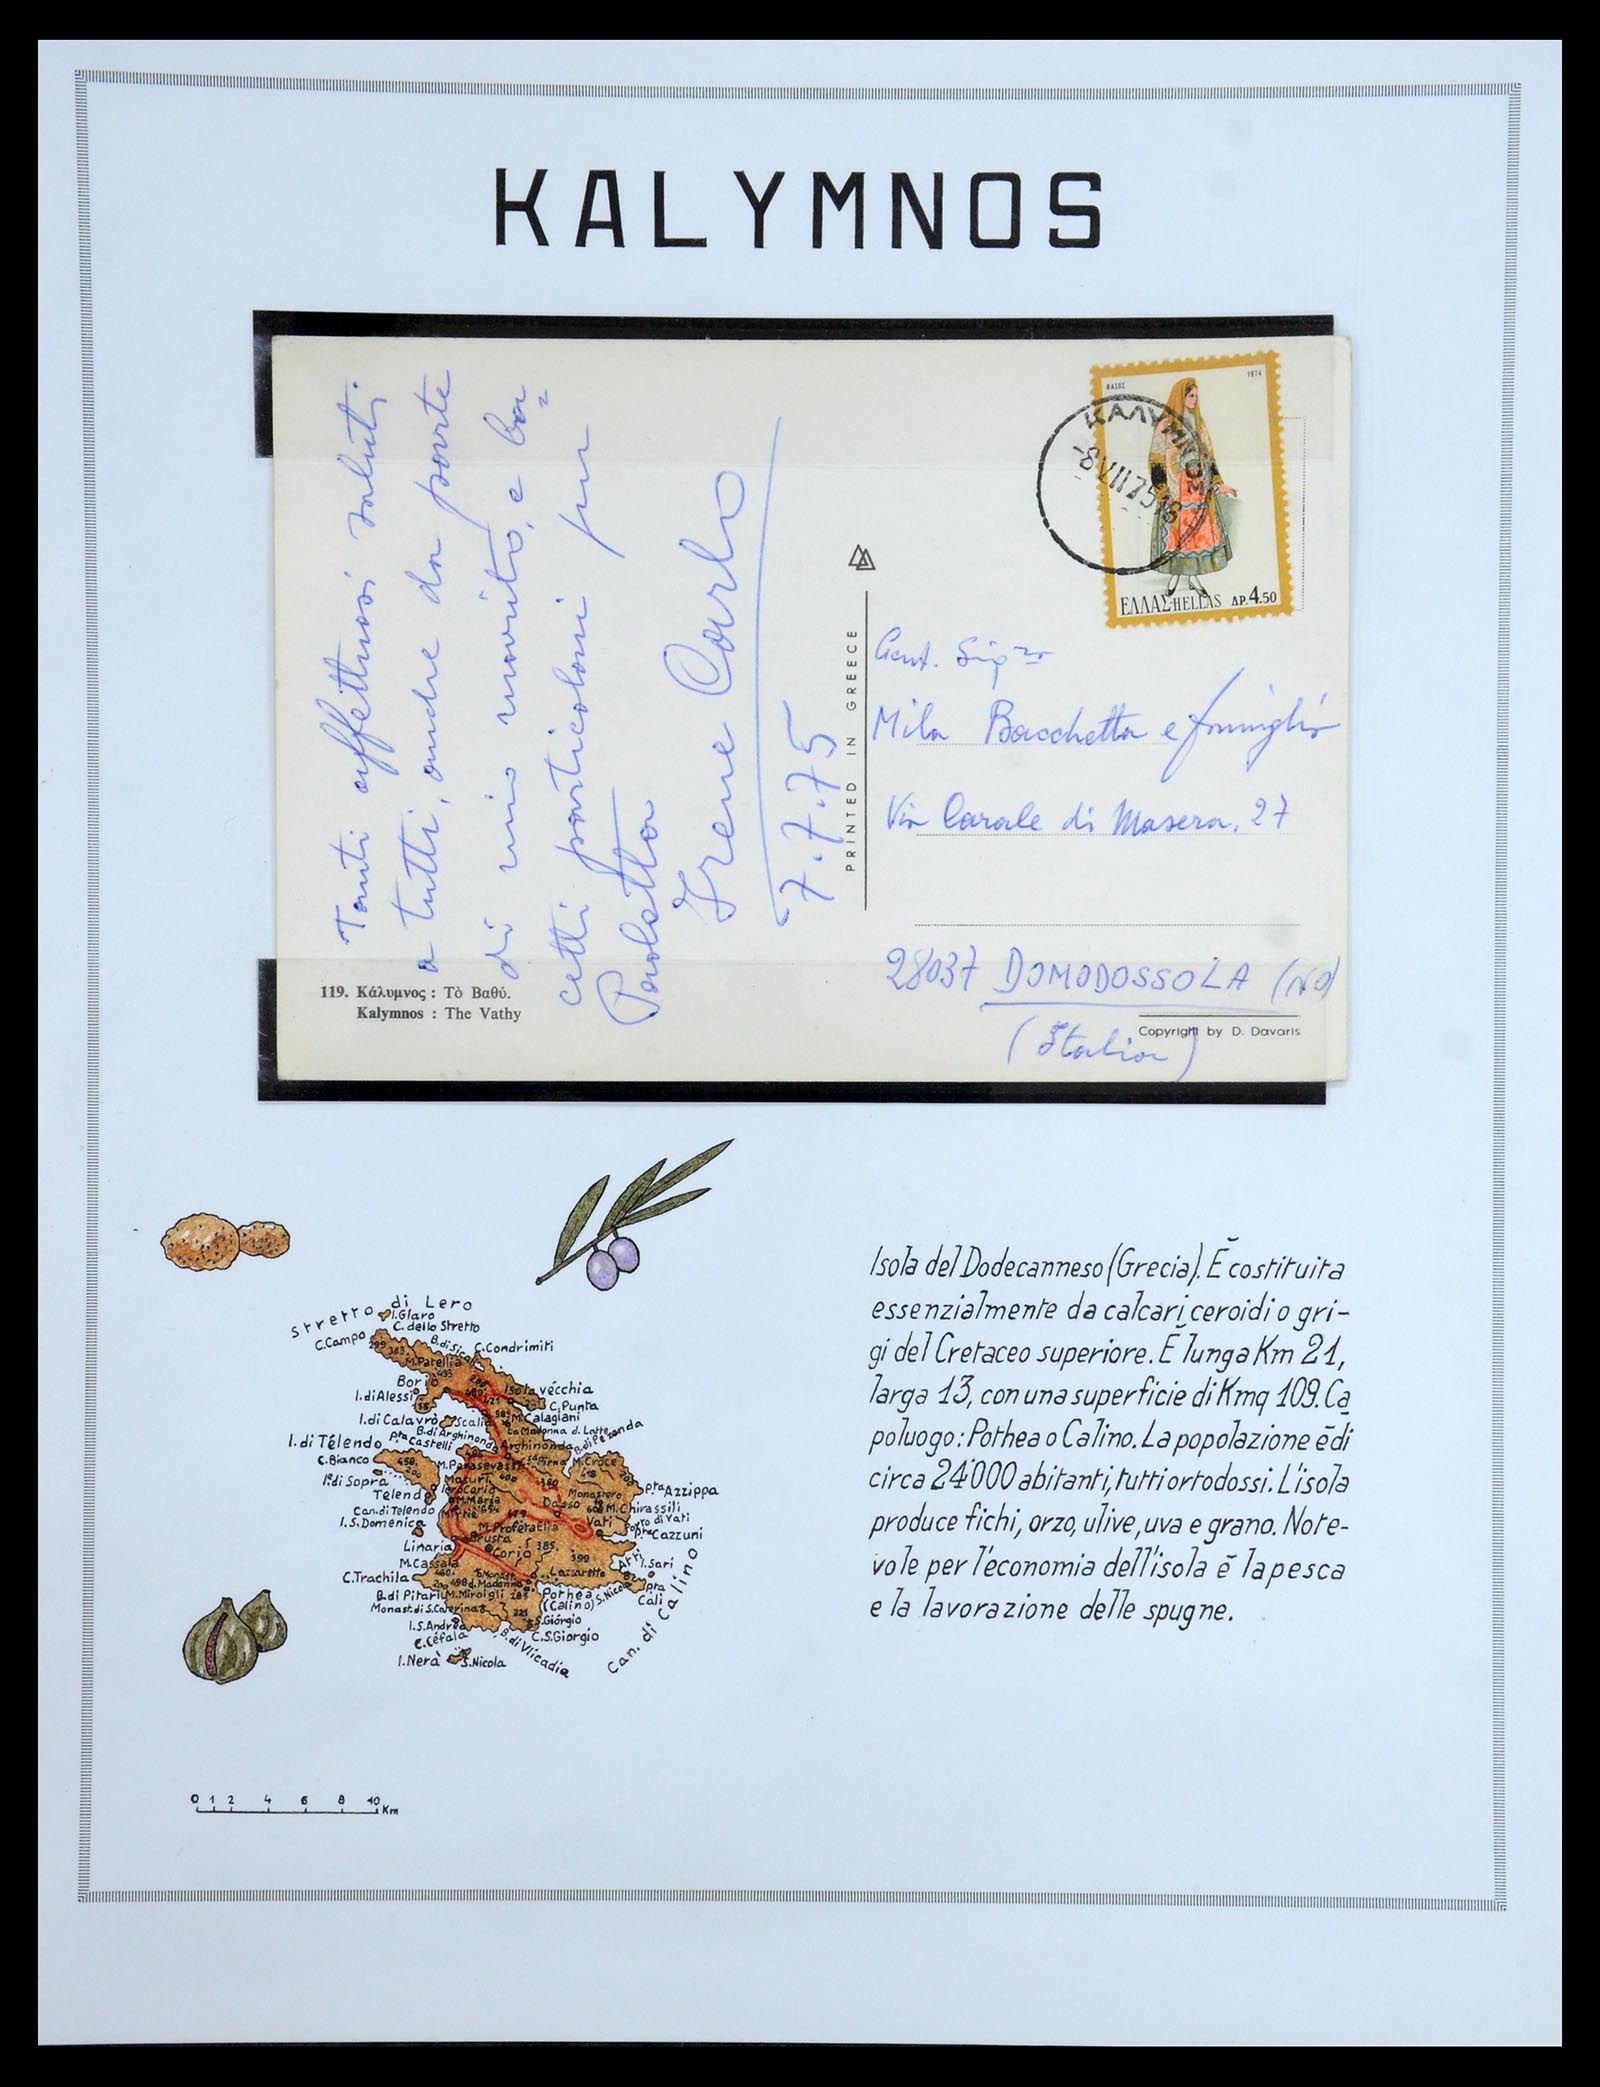 KALYMNOS
Tanti affettuosi saluti
a tutti, anche da parte
di mio marito, e ba=
cetti particolari per
Paoletta
Irene Carlo
7.7.75
119. Κάλυμνος : Τὸ Βαθύ.
Kalymnos : The Vathy
PRINTED IN GREECE
1974
ΚΑΛΥΜΝΟΣ
-8 VII 75
ΕΛΛΑΣ-HELLAS ΔΡ. 4.50
Gent. Sig.ra
Mila Bacchetta e famiglia
Via Casale di Masera, 27
28037 DOMODOSSOLA (NO)
(Italia)
Copyright by D. Davaris
Stretto di Lero
I.Glaro
C. dello Stretto
C.Campo
C.Condrimiti
M.Patellia
Borio
Isola vécchia
I.di Alessi
C.Punta
I.di Calavrò
Scalia
M.Calagiani
La Madonna d. Latte
B.di Arghinonda
Pta Castelli
Arghinonda
I.di Télendo
C.Bianco
M.Parasevas
M.Croce
I.di Sopra
Masuri
Pta Azzippa
Telendo
Monastero
M.Maria
Dasso
M.Chirassili
Can.di Telendo
Vati
Porto di Vati
I.S.Domenica
M.Profeta Elia
Pta Cazzuni
Linaria
Brusta
Corio
M.Cassala
I.Sari
C.Trachila
Lazzaretto
Pta Cali
B.di Pitari
M.Miroigli
Pothea
(Calino)
S.Nicola
Monast.di S.Caterina
I.S.Andrea
S.Giórgio
C.Céfala
C.S.Giorgio
B.di Vlicadia
I.Nerà
S.Nicola
Can. di Calino
0 1 2 4 6 8 10 Km
Isola del Dodecanneso (Grecia). È costituita
essenzialmente da calcari ceroidi o gri-
gi del Cretaceo superiore. È lunga Km 21,
larga 13, con una superficie di Kmq 109. Ca
poluogo: Pothea o Calino. La popolazione è di
circa 24'000 abitanti, tutti ortodossi. L'isola
produce fichi, orzo, ulive, uva e grano. Note-
vole per l'economia dell'isola è la pesca
e la lavorazione delle spugne.